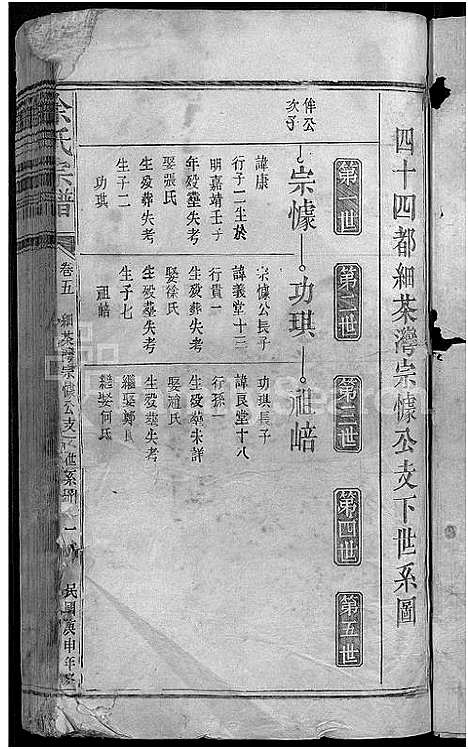 四十四都細茶灣宗懅公支下世系圖
第一世
第二世
第三世
第四世
第五世
伴公
次子
宗懅
功琪
祖㟝
諱康
行子二生於
明嘉靖壬子
年殁塟失考
娶張氏
生殁葬失考
生子二
功琪
宗懅公長子
諱義堂十三
行貴一
生殁葬失考
娶徐氏
生殁塟失考
生子七
祖㟝
功琪長子
諱良堂十八
行孫一
生殁塟未詳
娶湓氏
生殁塟失考
繼娶鄭氏
繼娶何氏
余氏宗譜
卷五
細茶灣宗懅公支下世系圖
一
民國庚申年